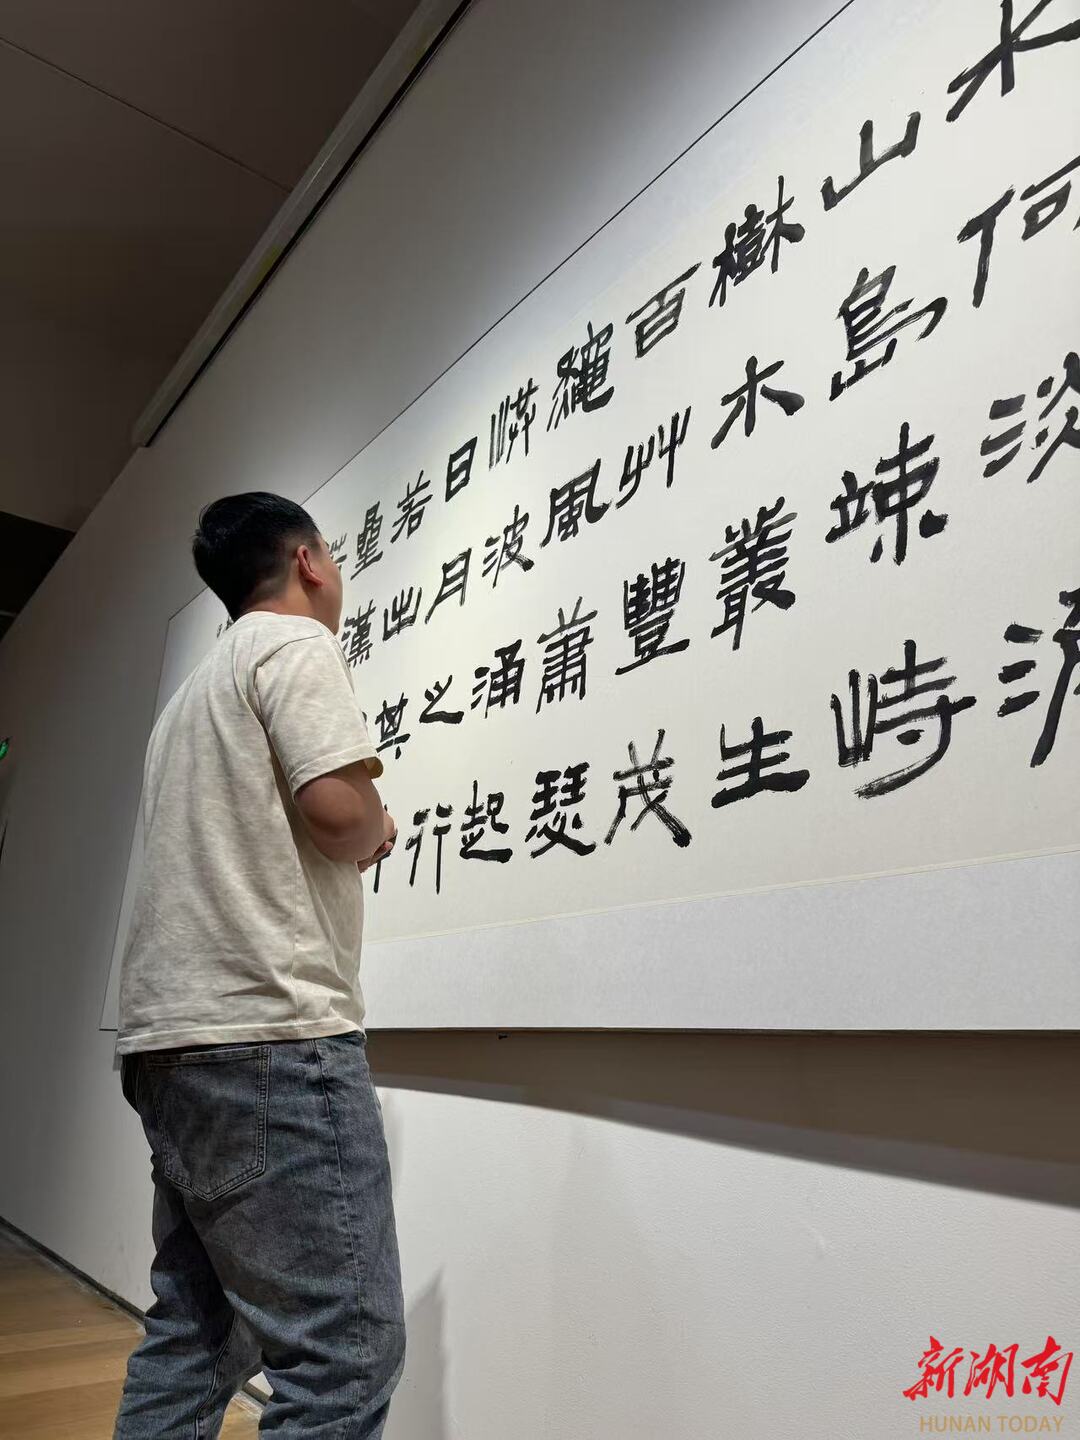 水何淡
山島竦峙
樹木叢生
百艸豐茂
龝風蕭瑟
洪波涌起
日月之行
若出其中
星漢
新湖南
HUNAN TODAY